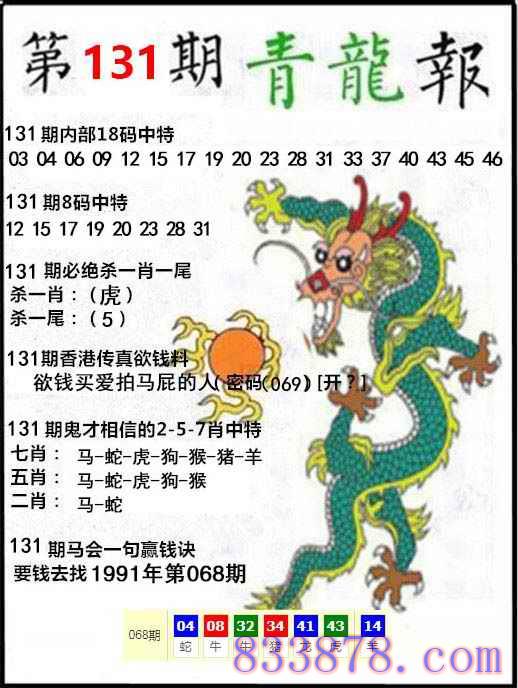 第131期青龍報
131期内部18码中特
03 04 06 09 12 15 17 19 20 23 28 31 33 37 40 43 45 46
131期8码中特
12 15 17 19 20 23 28 31
131 期必绝杀一肖一尾
杀一肖：（虎）
杀一尾：（5）
131期香港传真欲钱料
欲钱买爱拍马屁的人( 密码(069) [开？]
131期鬼才相信的2-5-7肖中特
七肖： 马-蛇-虎-狗-猴-猪-羊
五肖： 马-蛇-虎-狗-猴
二肖： 马-蛇
131 期马会一句赢钱诀
要钱去找 1991年第068期
068期 04 08 32 34 41 43 14
蛇 牛 牛 猪 龙 虎 羊
833878.com